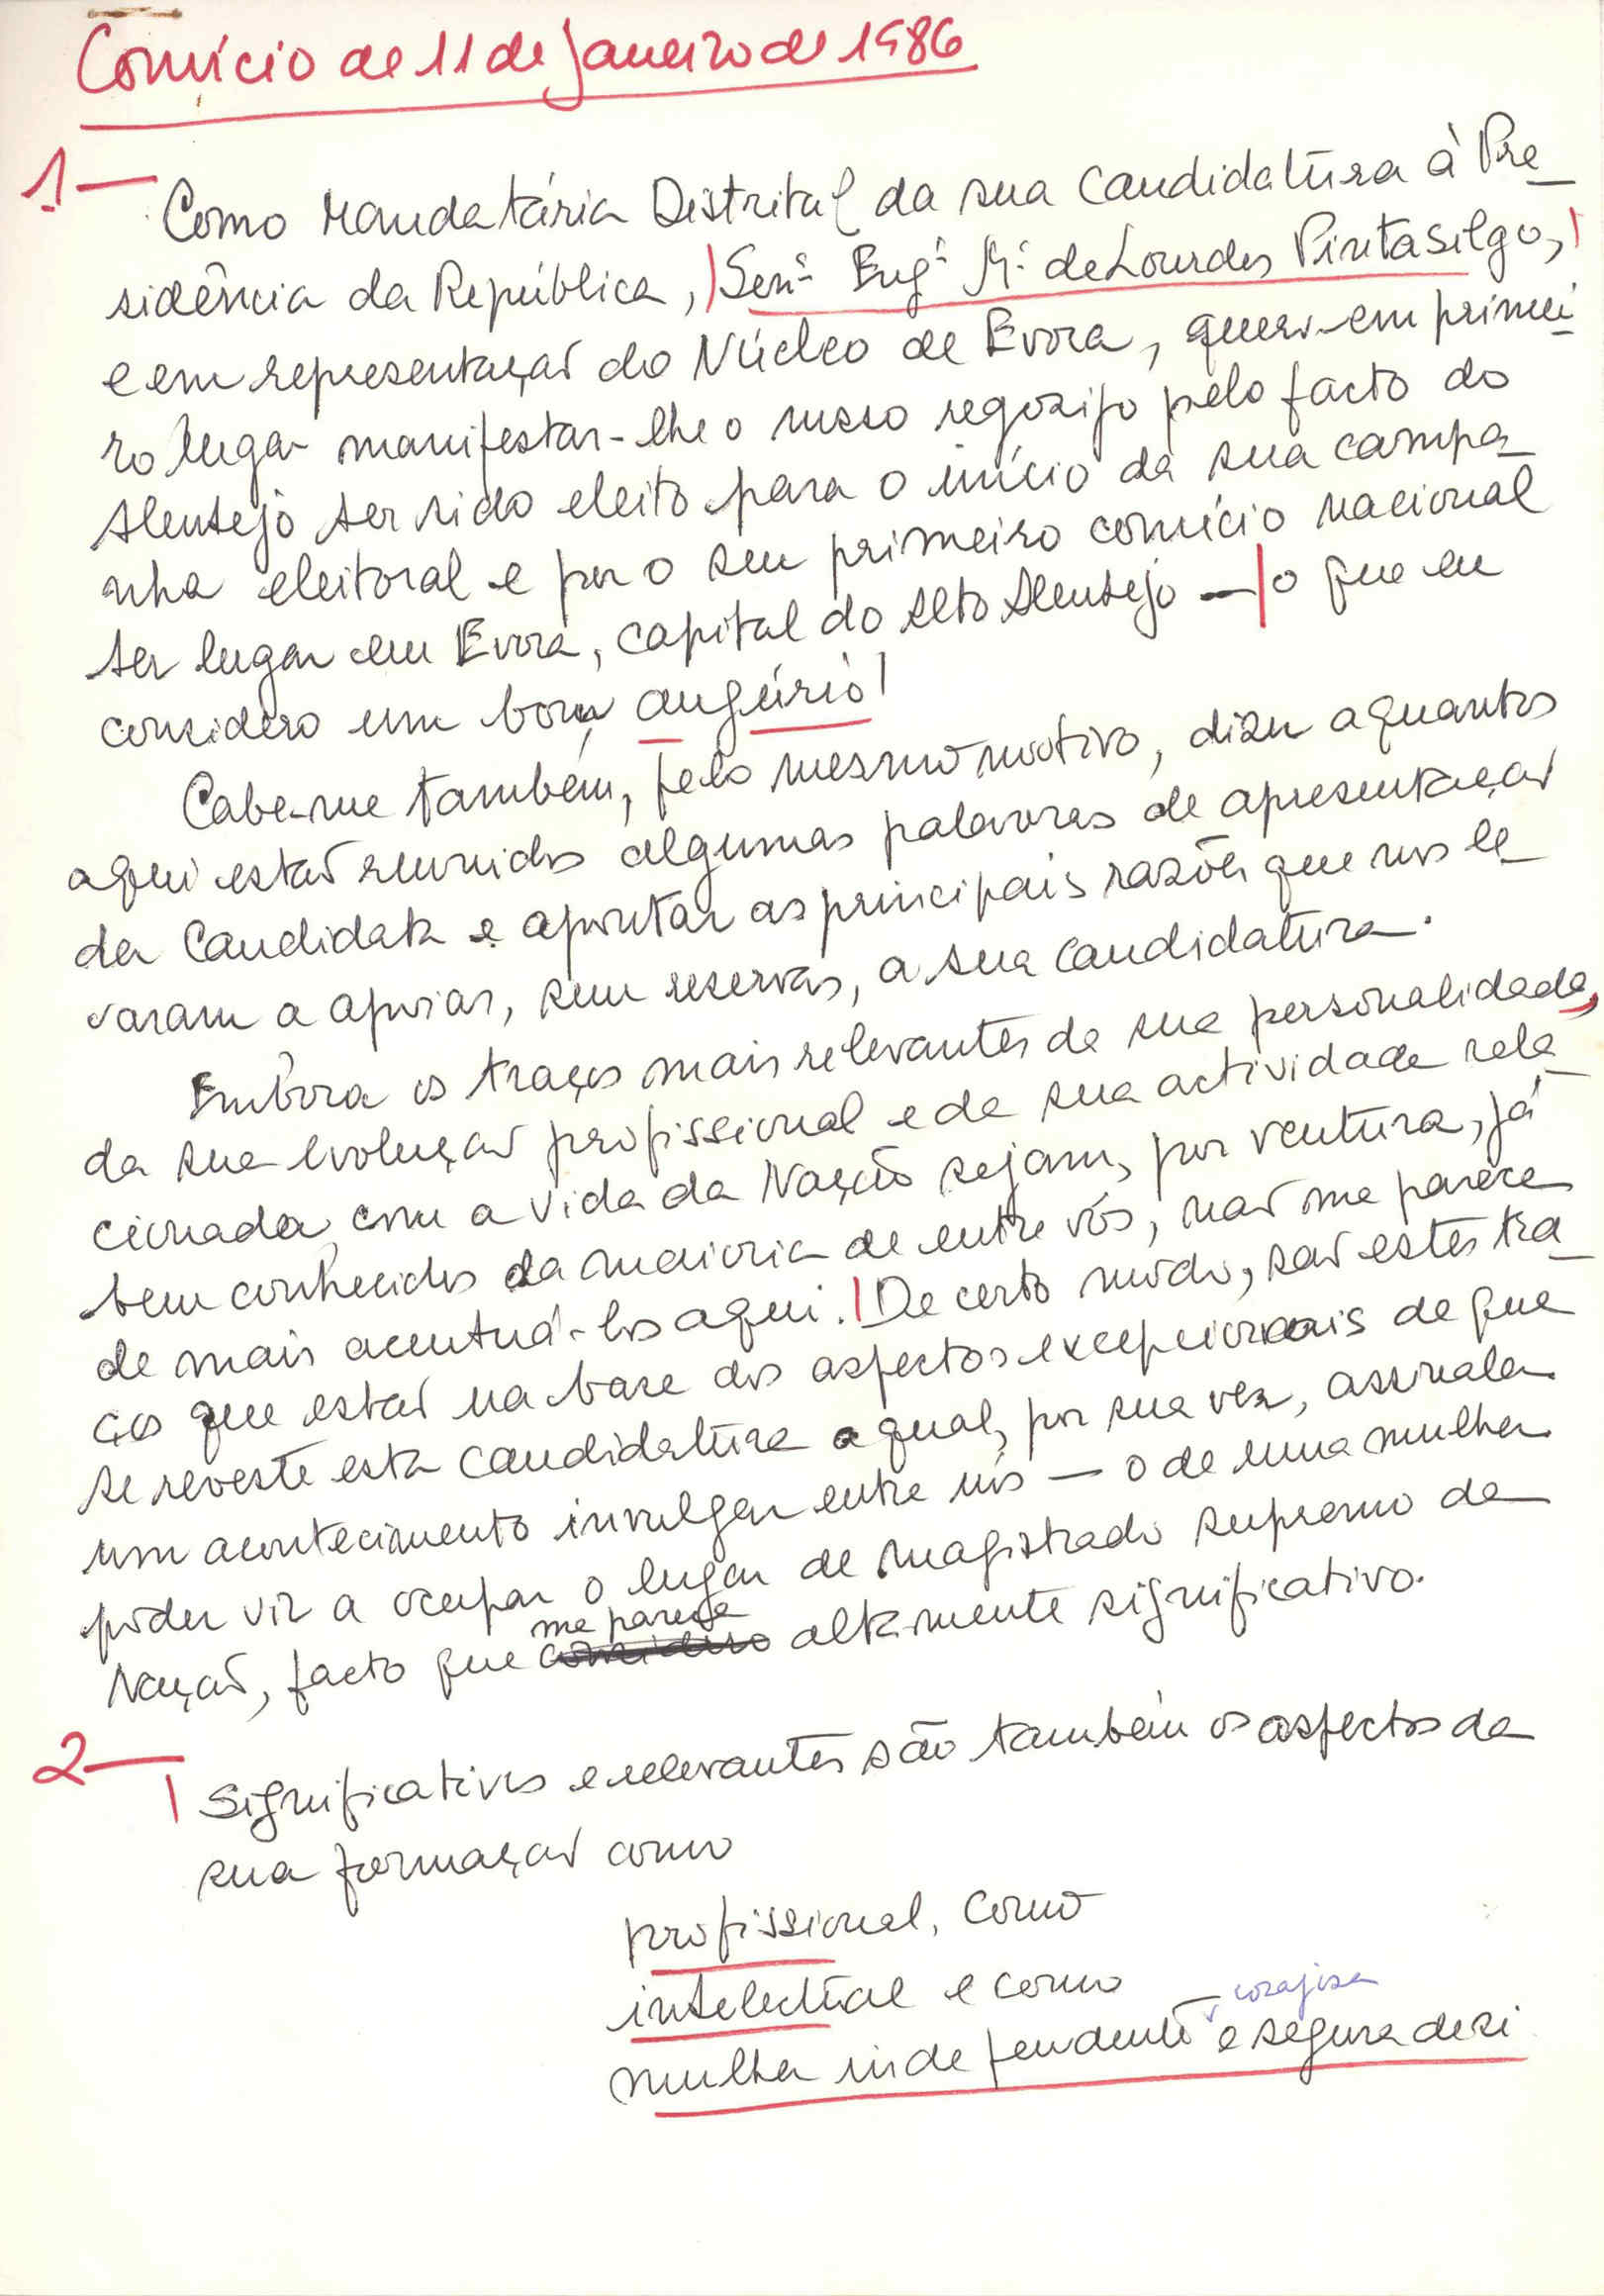 Comício de 11 de Janeiro de 1986
1—
Como Mandatária Distrital da sua candidatura à Pre_
sidência da República, | Senª Engª Mª de Lourdes Pintasilgo, |
e em representação do Núcleo de Evora, quero em primei
ro lugar manifestar-lhe o nosso regozijo pelo facto do
Alentejo ter sido eleito para o início da sua campa_
nha eleitoral e por o seu primeiro comício nacional
ter lugar em Evora, capital do Alto Alentejo —| o que eu
considero um bom augúrio!
Cabe-me também, pelo mesmo motivo, dizer a quantos
aqui estão reunidos algumas palavras de apresentação
da Candidata e apontar as principais razões que nos le_
varam a apoiar, sem reservas, a sua candidatura.
Embora os traços mais relevantes da sua personalidade,
da sua evolução profissional e da sua actividade rela_
cionada com a vida da Nação sejam, por ventura, já
bem conhecidos da maioria de entre vós, não me parece
de mais acentuá-los aqui. | De certo modo, são estes tra_
ços que estão na base dos aspectos excepcionais de que
se reveste esta candidatura a qual, por sua vez, assinala
um acontecimento invulgar entre nós — o de uma mulher
poder vir a ocupar o lugar de magistrado supremo da
me parece
Nação, facto que considero altamente significativo.
2—
| Significativos e relevantes são também os aspectos da
sua formação como
profissional, como
intelectual e como
corajosa
mulher independente e segura de si